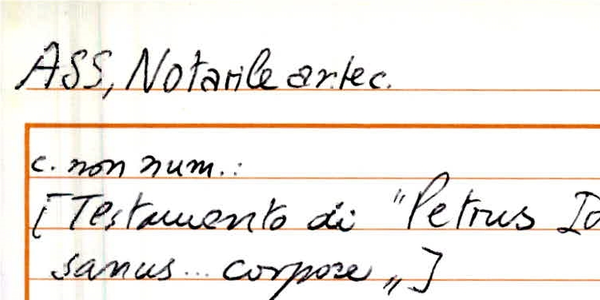 ASS, Notarile antec.
c. non num.:
[Testamento di "Petrus Io
sanus... corpore„]